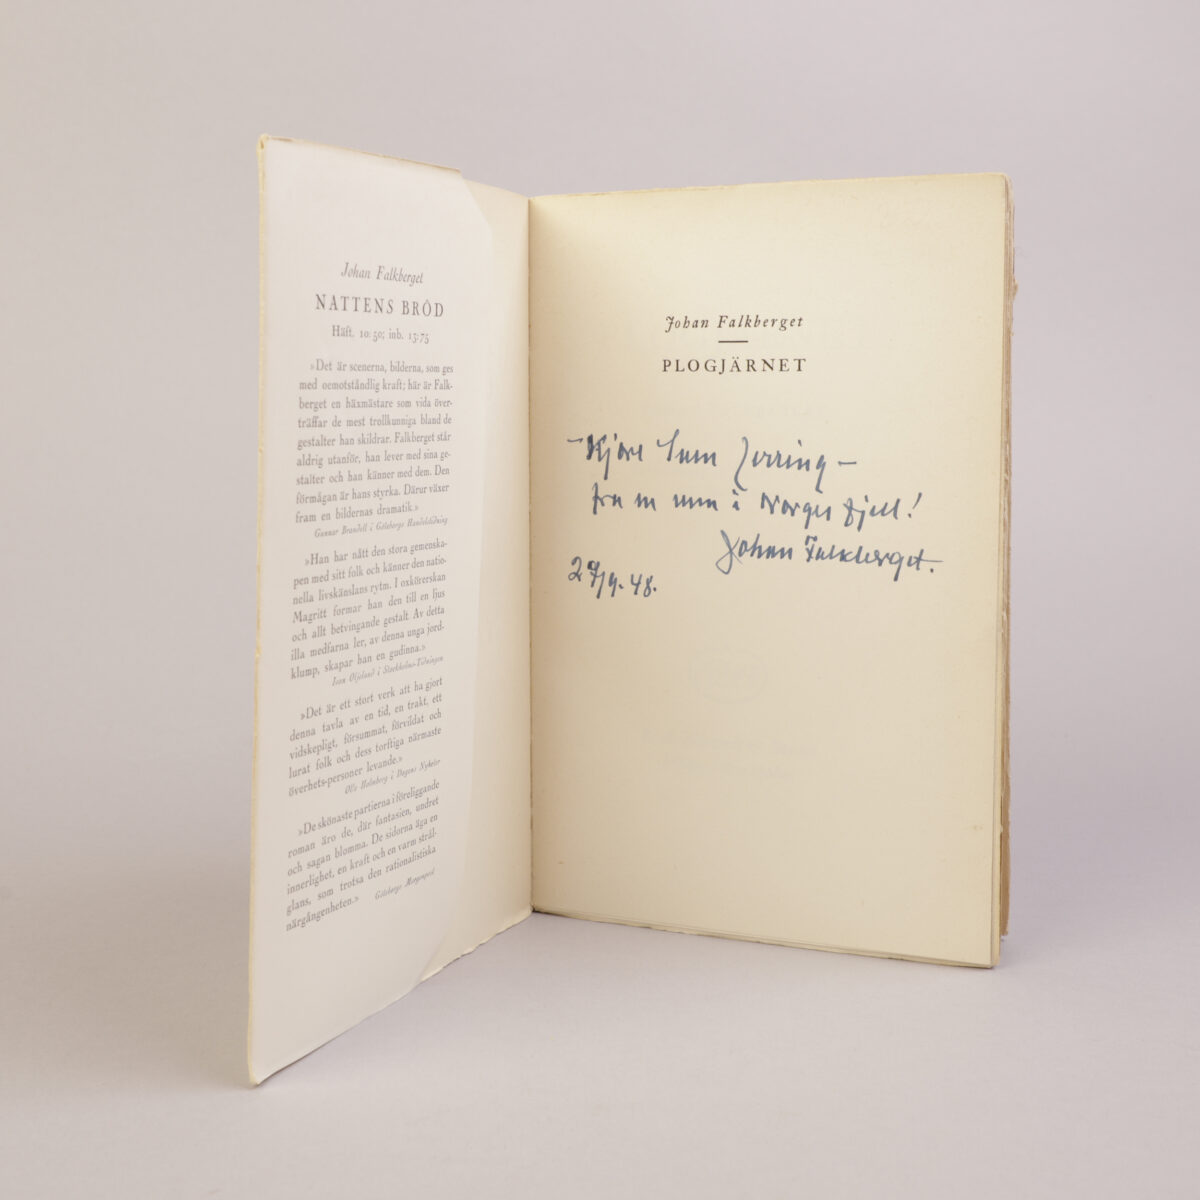 Johan Falkberget
NATTENS BRÖD
Häft. 10:50; inb. 13:75
»Det är scenerna, bilderna, som ges
med oemotståndlig kraft; här är Falk-
berget en häxmästare som vida över-
träffar de mest trollkunniga bland de
gestalter han skildrar. Falkberget står
aldrig utanför, han lever med sina ge-
stalter och han känner med dem. Den
förmågan är hans styrka. Därur växer
fram en bildernas dramatik.»
Gunnar Brandell i Göteborgs Handelstidning
»Han har nått den stora gemenska-
pen med sitt folk och känner den natio-
nella livskänslans rytm. I oxkörerskan
Magritt formar han den till en ljus
och allt betvingande gestalt. Av detta
illa medfarna ler, av denna unga jord-
klump, skapar han en gudinna.»
Ivan Oljelund i Stockholms-Tidningen
»Det är ett stort verk att ha gjort
denna tavla av en tid, en trakt, ett
vidskepligt, försummat, förvildat och
lurat folk och dess torftiga närmaste
överhets-personer levande.»
Olle Holmberg i Dagens Nyheter
»De skönaste partierna i föreliggande
roman äro de, där fantasien, undret
och sagan blomma. De sidorna äga en
innerlighet, en kraft och en varm strål-
glans, som trotsa den rationalistiska
närgångenheten.»
Göteborgs Morgonpost
Johan Falkberget
PLOGJÄRNET
– Kjære
fra en i Norges fjell!
Johan Falkberget.
27/9-48.